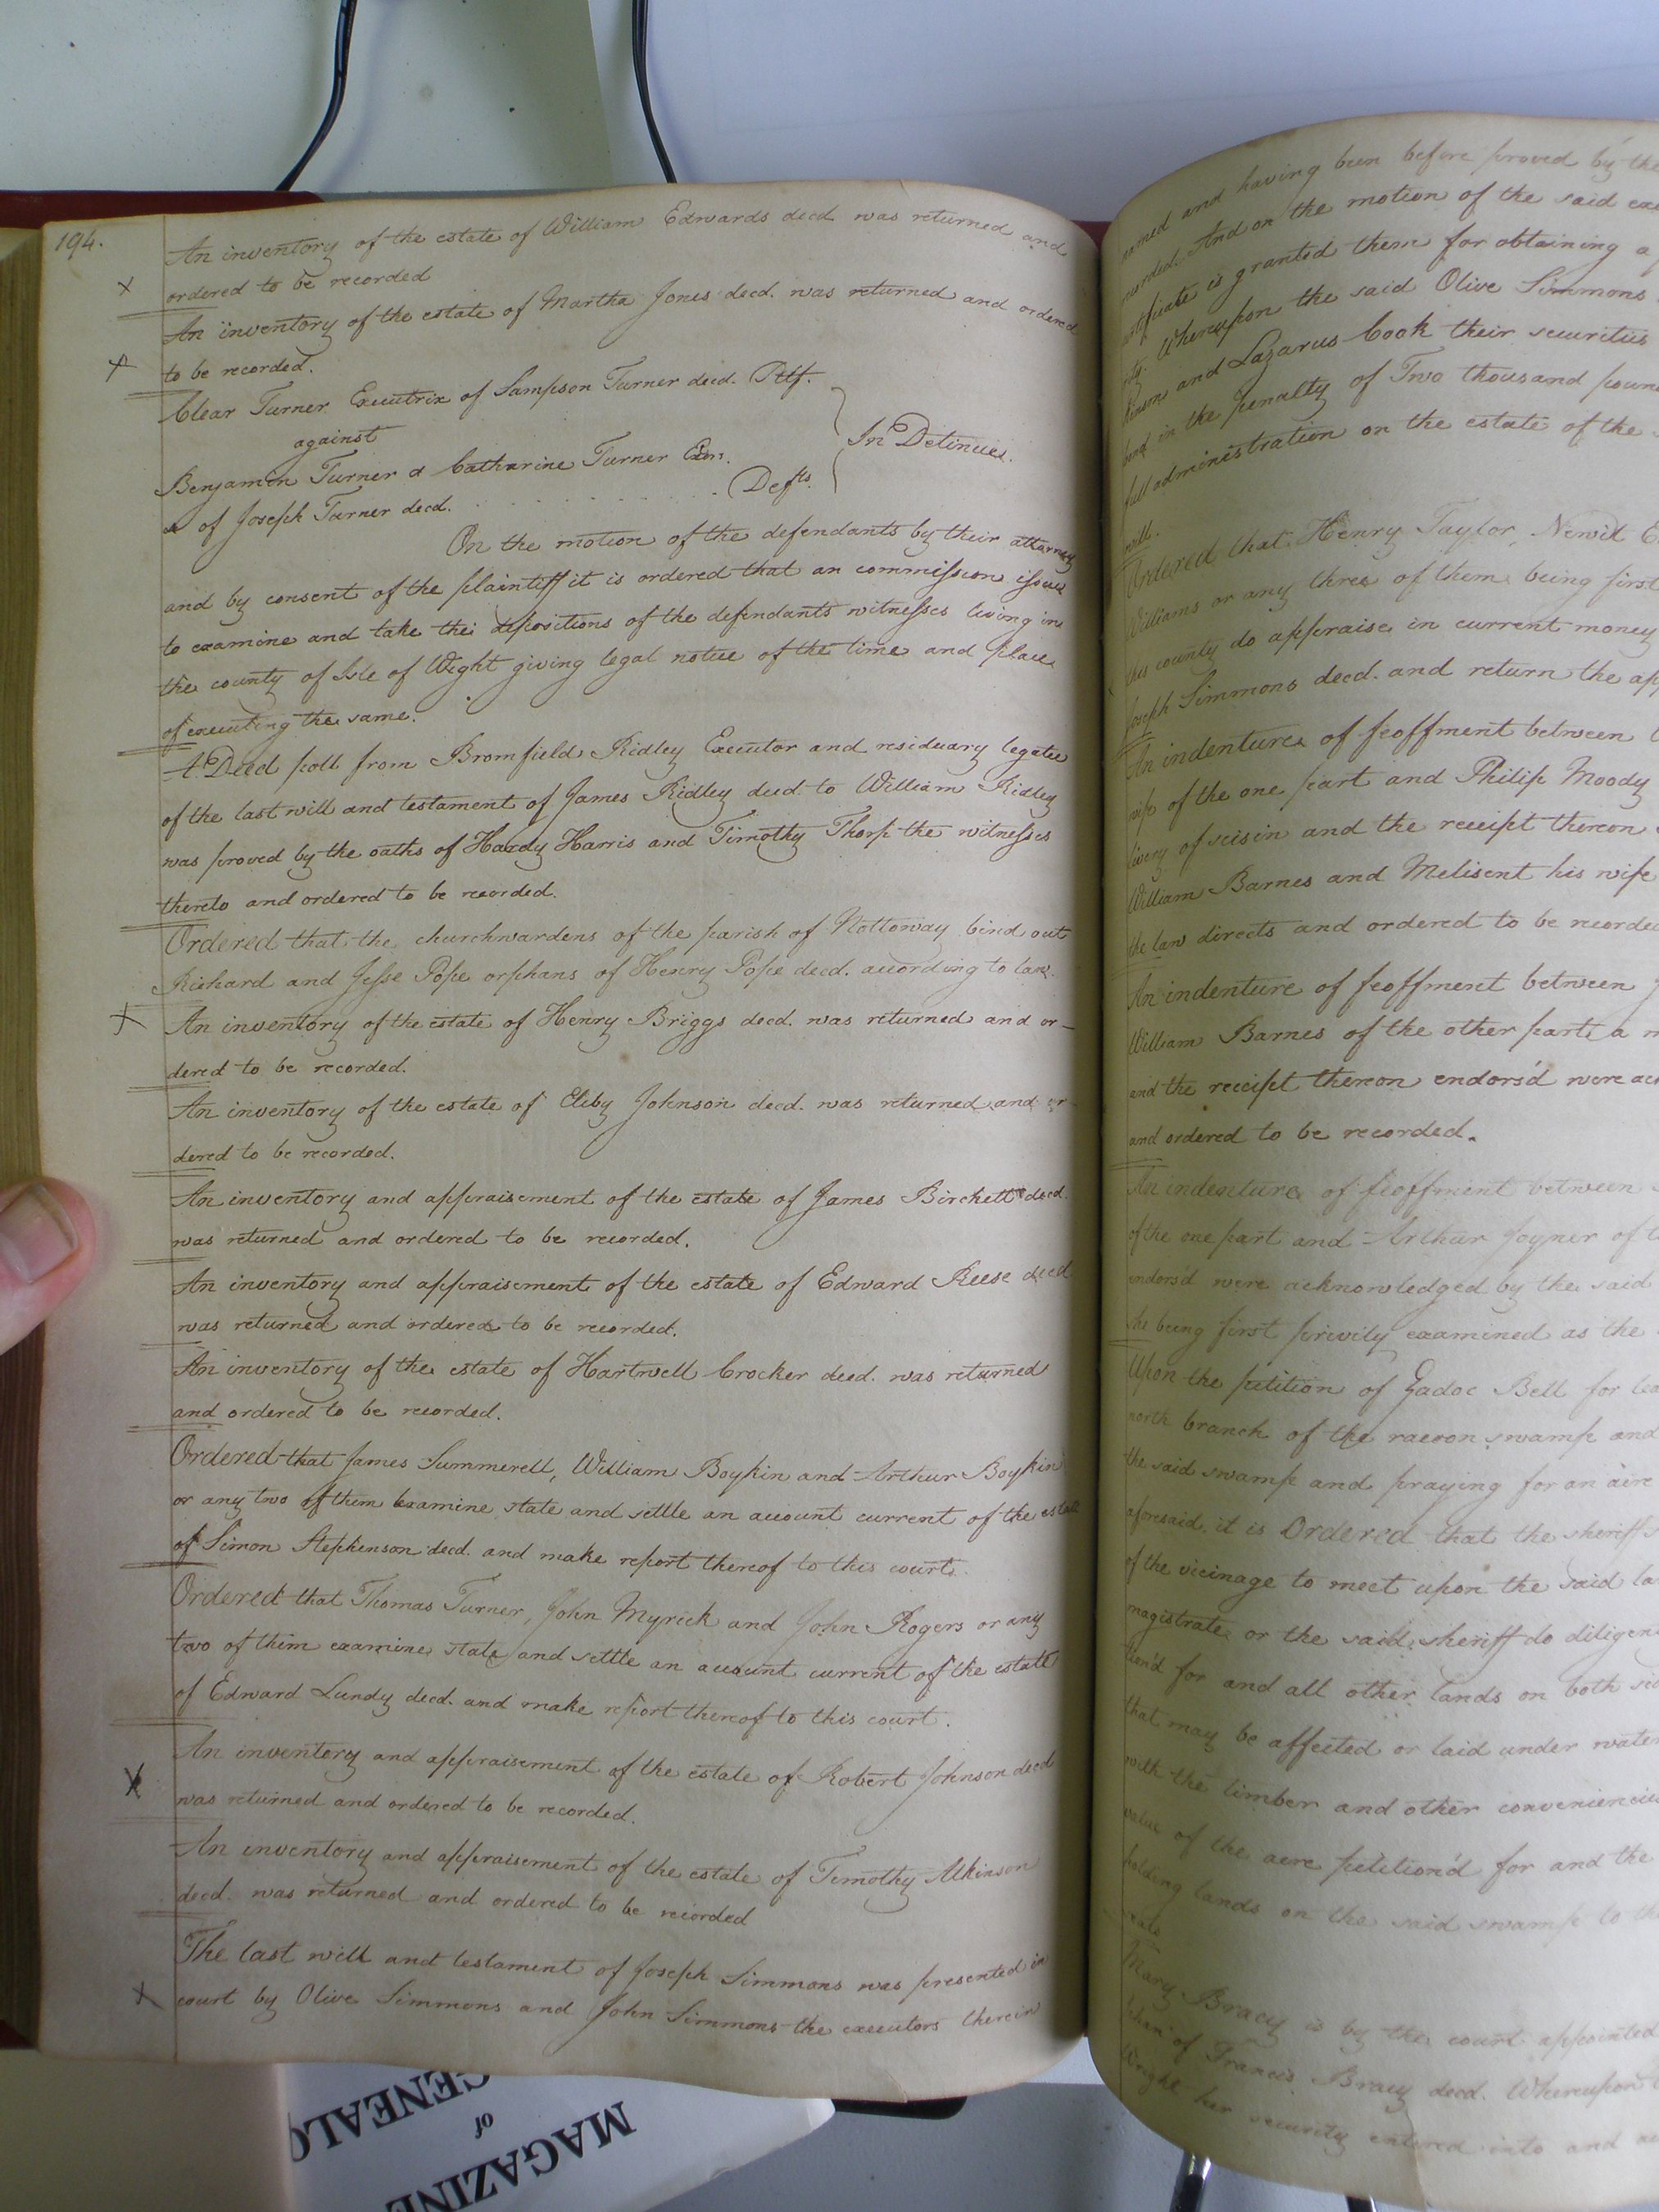 194.
An inventory of the estate of William Edwards decd was returned and
ordered to be recorded
An inventory of the estate of Martha Jones decd. was returned and ordered
to be recorded.
Clear Turner Executrix of Sampson Turner decd. Pltf.
against
In Detinue.
Benjamin Turner & Catharine Turner Exrs.
of Joseph Turner decd. . . . . . . . . . . . Defts.
On the motion of the defendants by their attorney
and by consent of the plaintiff it is ordered that an commission issue
to examine and take the depositions of the defendants witnesses living in
the county of Isle of Wight giving legal notice of the time and place
of executing the same.
A Deed poll from Bromfield Ridley Executor and residuary legatee
of the last will and testament of James Ridley decd. to William Ridley
was proved by the oaths of Hardy Harris and Timothy Thorp the witnesses
thereto and ordered to be recorded.
Ordered that the churchwardens of the parish of Nottoway bind out
Richard and Jesse Pope orphans of Henry Pope decd. according to law.
An inventory of the estate of Henry Briggs decd. was returned and or-
dered to be recorded.
An inventory of the estate of Eliby Johnson decd. was returned and or-
dered to be recorded.
An inventory and appraisement of the estate of James Birchett decd.
was returned and ordered to be recorded.
An inventory and appraisement of the estate of Edward Reese decd
was returned and ordered to be recorded.
An inventory of the estate of Hartwell Crocker decd. was returned
and ordered to be recorded.
Ordered that James Summerell, William Boykin and Arthur Boykin
or any two of them examine state and settle an account current of the estate
of Simon Stephenson decd. and make report thereof to this court.
Ordered that Thomas Turner, John Myrick and John Rogers or any
two of them examine state and settle an account current of the estate
of Edward Lundy decd. and make report thereof to this court.
An inventory and appraisement of the estate of Robert Johnson decd
was returned and ordered to be recorded.
An inventory and appraisement of the estate of Timothy Atkinson
decd. was returned and ordered to be recorded
The last will and testament of Joseph Simmons was presented in
court by Olive Simmons and John Simmons the executors therein
and having been before proved by the
And on the motion of the said
is granted them for obtaining a
Whereupon the said Olive Simmons
and Lazarus Cook their securities
in the penalty of Two thousand
full administration on the estate of the
will.
Ordered that Henry Taylor, Newit
Williams or any three of them being first
this county do appraise in current money
Joseph Simmons decd. and return the
An indenture of feoffment between
wife of the one part and Philip Moody
livery of seisin and the receipt thereon
William Barnes and Melisent his wife
the law directs and ordered to be recorded
An indenture of feoffment between
William Barnes of the other part a
and the receipt thereon endors'd were
and ordered to be recorded.
An indenture of feoffment between
of the one part and Arthur Joyner of
endors'd were acknowledged by the said
she being first privily examined as the
Upon the petition of Zadoc Bell for
north branch of the racoon swamp and
the said swamp and praying for an acre
aforesaid, it is Ordered that the sheriff
of the vicinage to meet upon the said
magistrate or the said sheriff do
for and all other lands on both
that may be affected or laid under water
with the timber and other conveniencies
value of the acre petition'd for and the
holding lands on the said swamp to
Mary Bracy is by the court appointed
of Francis Bracy decd. Whereupon
her security entered into and
MAGAZINE
of
GENEALO